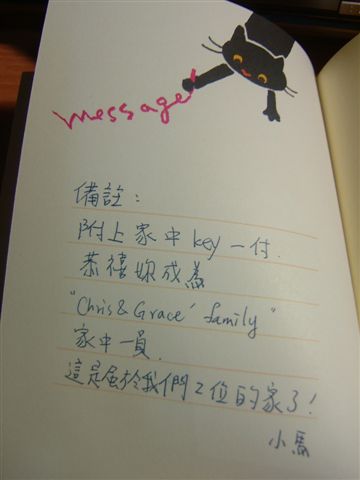 message
備註：
附上家中key一付.
恭禧妳成為
"Chris & Grace' family"
家中一員.
這是屬於我們2位的家了!
小馬